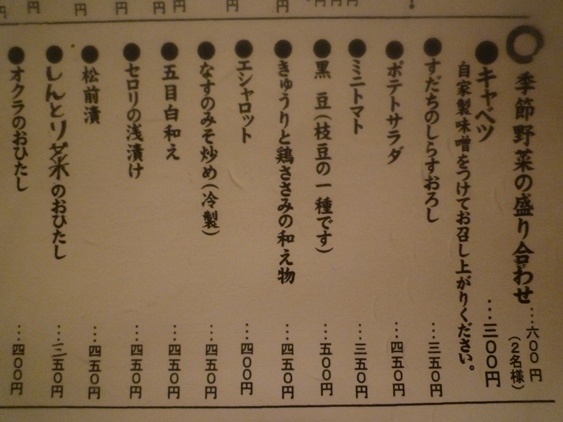 ◯季節野菜の盛り合わせ…六〇〇円
(2名様)
●キャベツ…三〇〇円
自家製味噌をつけてお召し上がりください。
●すだちのしらすおろし…三五〇円
●ポテトサラダ…四五〇円
●ミニトマト…三五〇円
●黒豆(枝豆の一種です)…五〇〇円
●きゅうりと鶏ささみの和え物…四五〇円
●エシャロット…四〇〇円
●なすのみそ炒め(冷製)…四五〇円
●五目白和え…四五〇円
●セロリの浅漬け…四五〇円
●松前漬…四五〇円
●しんとり菜のおひたし…三五〇円
●オクラのおひたし…四〇〇円